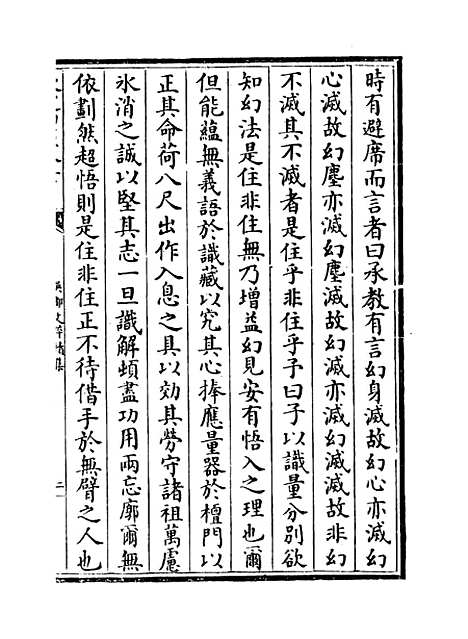 時有避席而言者曰承教有言幻身滅故幻心亦滅幻
心滅故幻塵亦滅幻塵滅故幻滅亦滅幻滅滅故非幻
不滅其不滅者是住乎非住乎予曰子以識量分別欲
知幻法是住非住無乃增益幻見安有悟入之理也爾
但能蘊無義語於識藏以究其心捧應量器於檀門以
正其命荷八尺出作入息之具以効其勞守諸祖萬慮
氷消之誠以堅其志一旦識解頓盡功用兩忘廓爾無
依劃然超悟則是住非住正不待借手於無臂之人也
吳都文粹續集